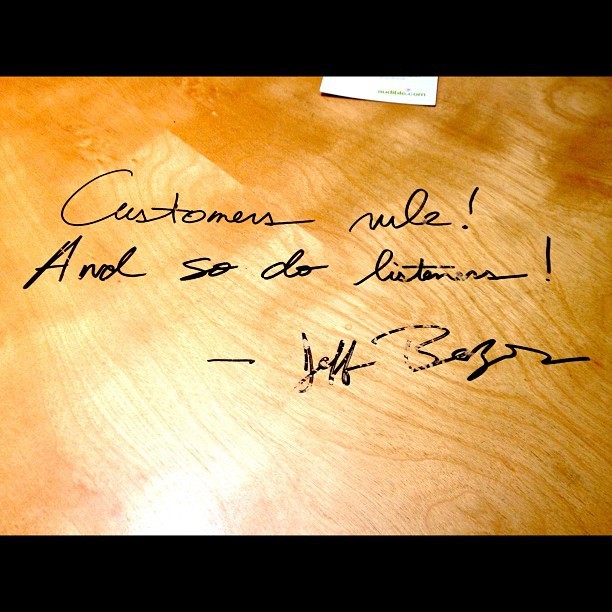 audible.com
Customers rule!
And so do listeners!
— Jeff Bezos